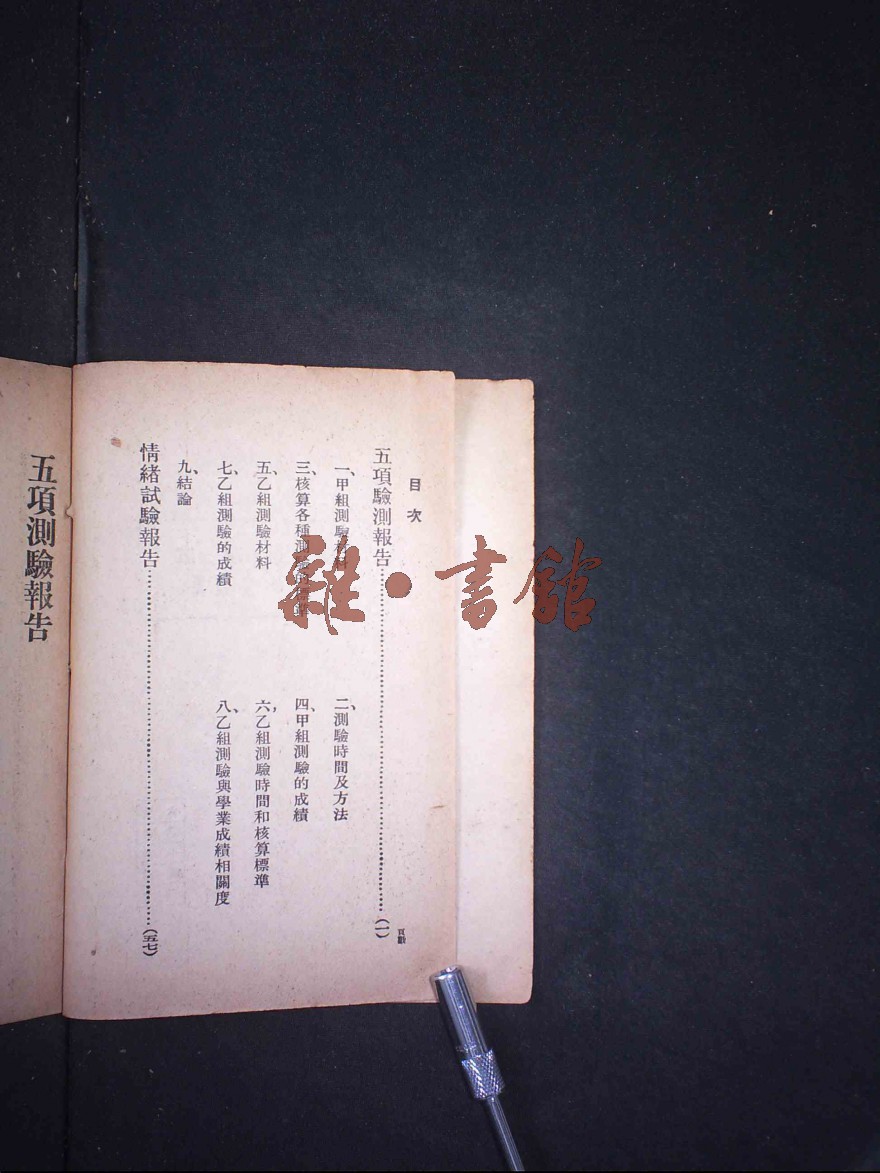 目次
頁數
五項驗測報告……(一)
一、甲組測驗材料
二、測驗時間及方法
三、核算各種測驗的標準
四、甲組測驗的成績
五、乙組測驗材料
六、乙組測驗時間和核算標準
七、乙組測驗的成績
八、乙組測驗與學業成績相關度
九、結論
情緒試驗報告……(五七)
五項測驗報告
雜·書館